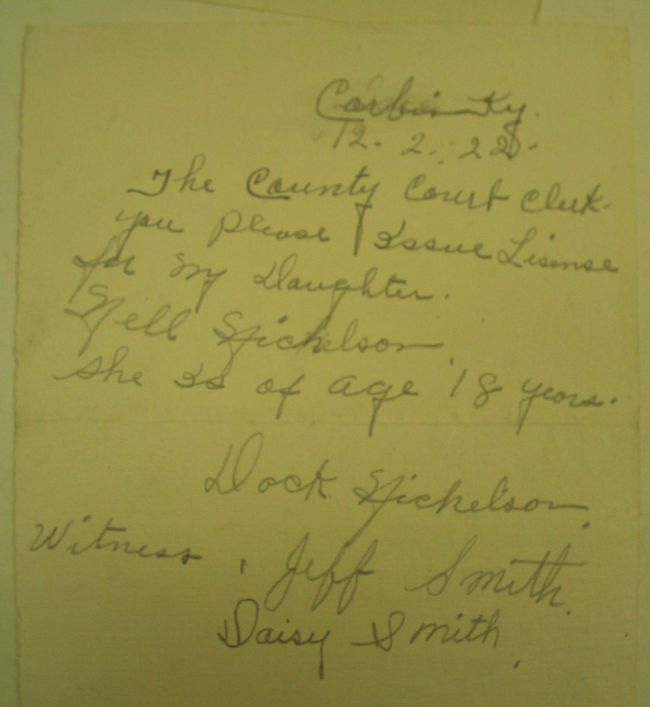 Corbin Ky.
12. 2. 22.
The County Court Clerk.
you please Issue Lisense
for my Daughter.
Nell Nickelson
she Is of age 18 years.
Dock Nickelson.
Witness. Jeff Smith.
Daisy Smith.